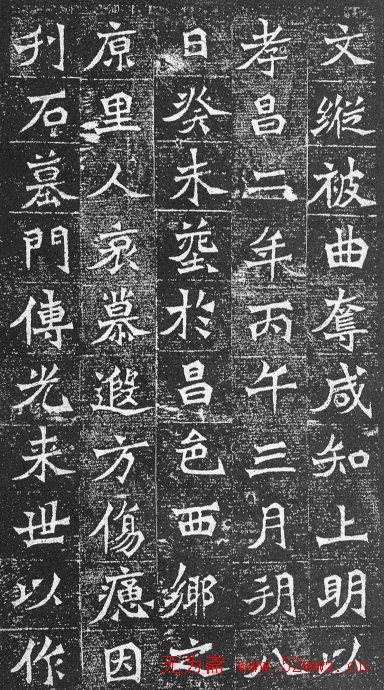 文縱被曲奪咸知上明以
孝昌二年丙午三月朔八
日癸未塟於昌邑西鄉
原里人哀慕遐方傷因
刊石墓門傳光来世以作
无为斋 www.52wwz.cn